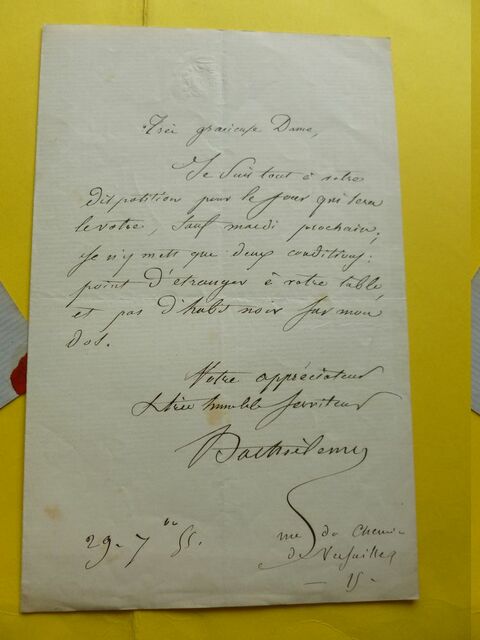 Très gracieuse Dame,
Je suis tout à votre
disposition pour le jour qui sera
le vôtre, sauf mardi prochain;
je n'y mets que deux conditions:
point d'étranger à votre table,
et pas d'habit noir sur mon
dos.
Votre appréciateur
& très humble serviteur
Barthélemy
29 - 7bre 55.
rue du Chemin
de Versailles
- 15 -